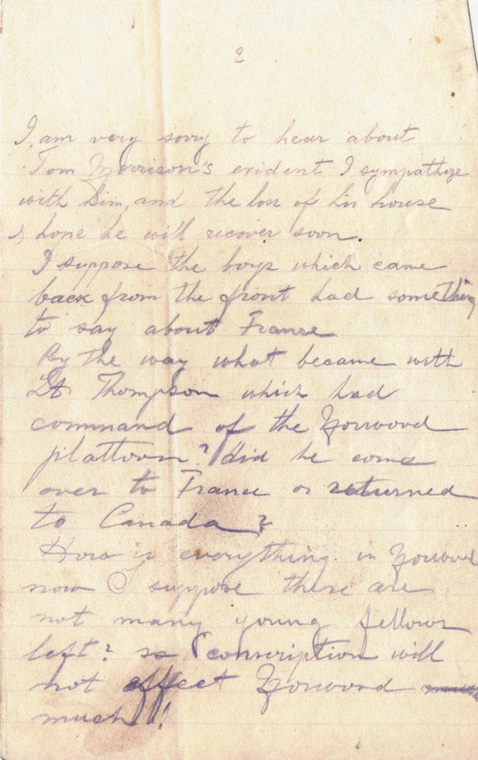 2
I am very sorry to hear about
Tom Morrison's evident I sympathize
with him, and the loss of his house
I hope he will recover soon.
I suppose the boys which came
back from the front had something
to say about France
By the way what became with
Lt Thompson which had
command of the Norwood
plattoon? did he come
over to France or returned
to Canada?
How is everything in Norwood
now I suppose there are
not many young fellows
left? so conscription will
not effect Norwood
much!